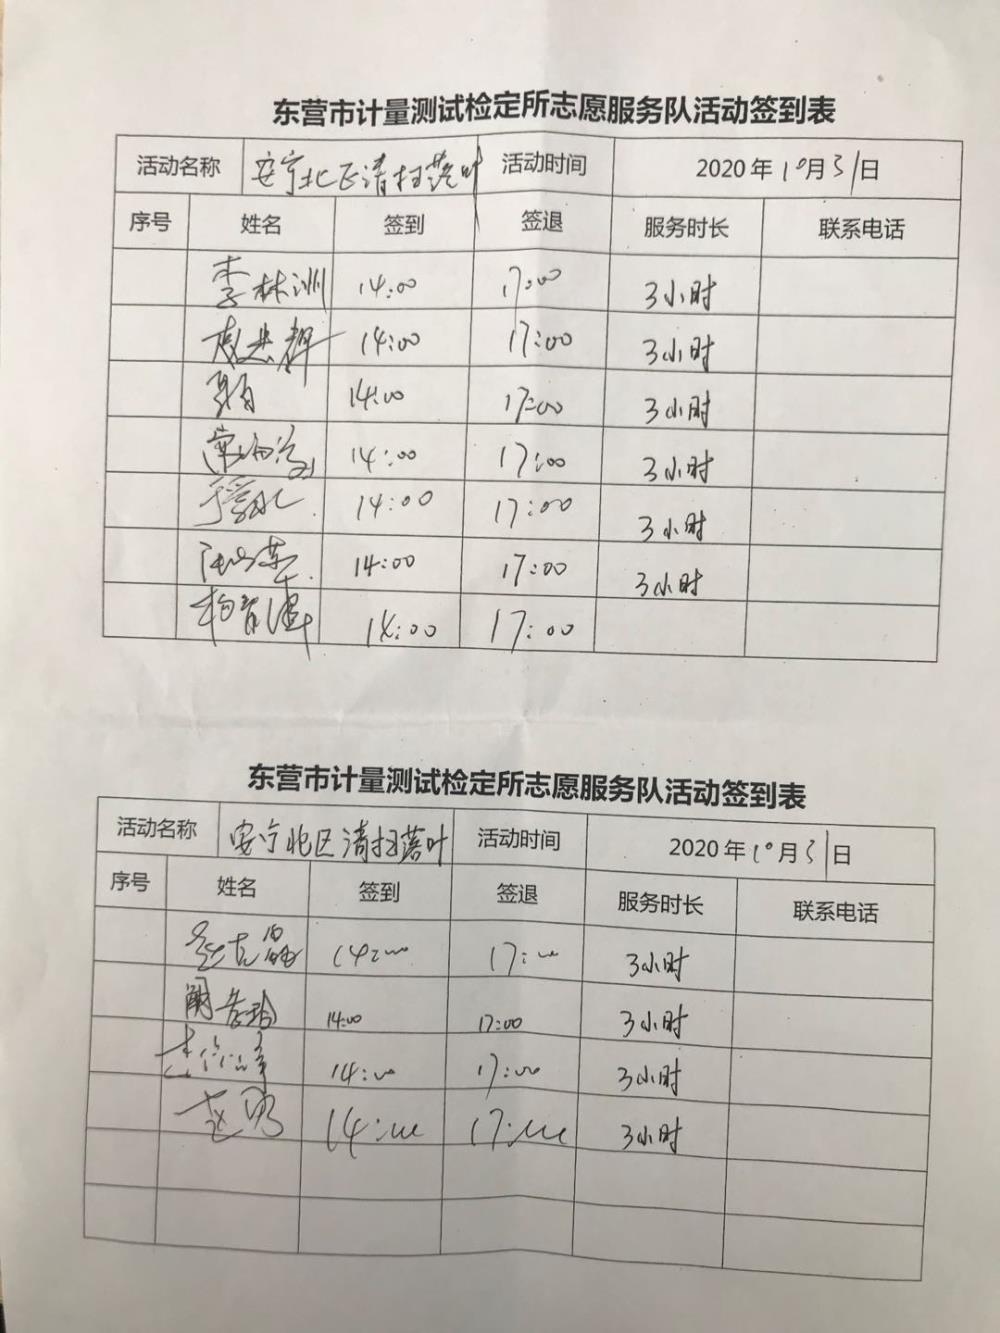 东营市计量测试检定所志愿服务队活动签到表
活动名称 安宁北区清扫落叶 活动时间 2020年10月31日
序号 姓名 签到 签退 服务时长 联系电话
李林洲 14:00 17:00 3小时
14:00 17:00 3小时
14:00 17:00 3小时
14:00 17:00 3小时
14:00 17:00 3小时
14:00 17:00 3小时
14:00 17:00
东营市计量测试检定所志愿服务队活动签到表
活动名称 安宁北区清扫落叶 活动时间 2020年10月31日
序号 姓名 签到 签退 服务时长 联系电话
14:00 17:00 3小时
14:00 17:00 3小时
14:00 17:00 3小时
14:00 17:00 3小时